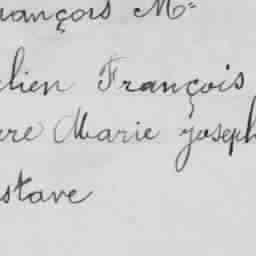 rançois M=
lien François
re Marie joseph
stave